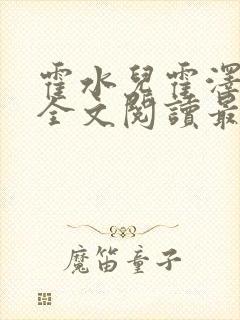 霍水兒霍澤
全文閱讀最
魔笛童子